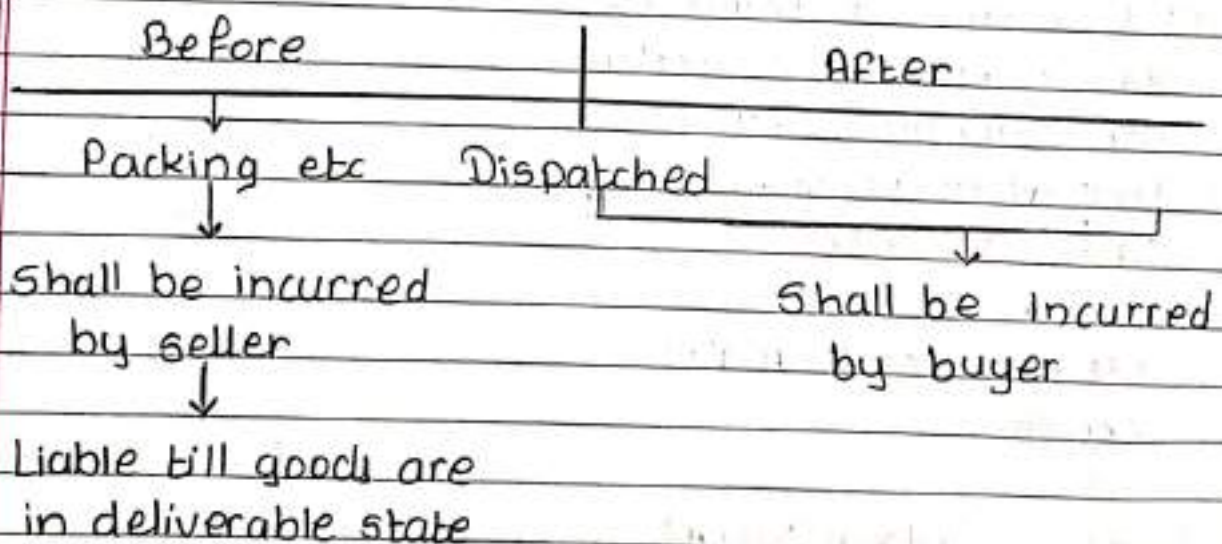 Before
After
Packing etc Dispatched
Shall be incurred
by seller
Shall be Incurred
by buyer
Liable till goods are
in deliverable state